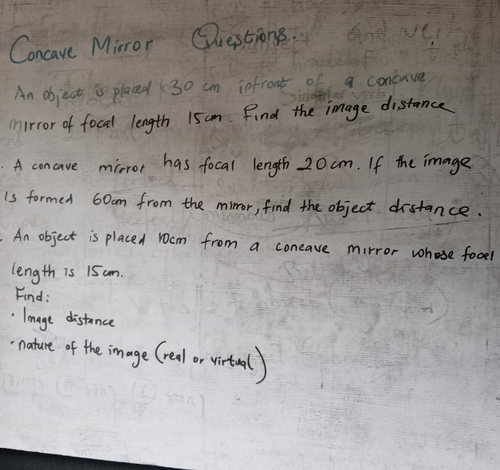 Concave Mirror Questions.
An object is placed 30 cm infront of a concave
mirror of focal length 15cm. Find the image distance
. A concave mirror has focal length 20cm. If the image
is formed 60cm from the mirror, find the object distance.
. An object is placed 10cm from a concave mirror whose focal
length is 15cm.
Find:
· Image distance
· nature of the image (real or virtual)